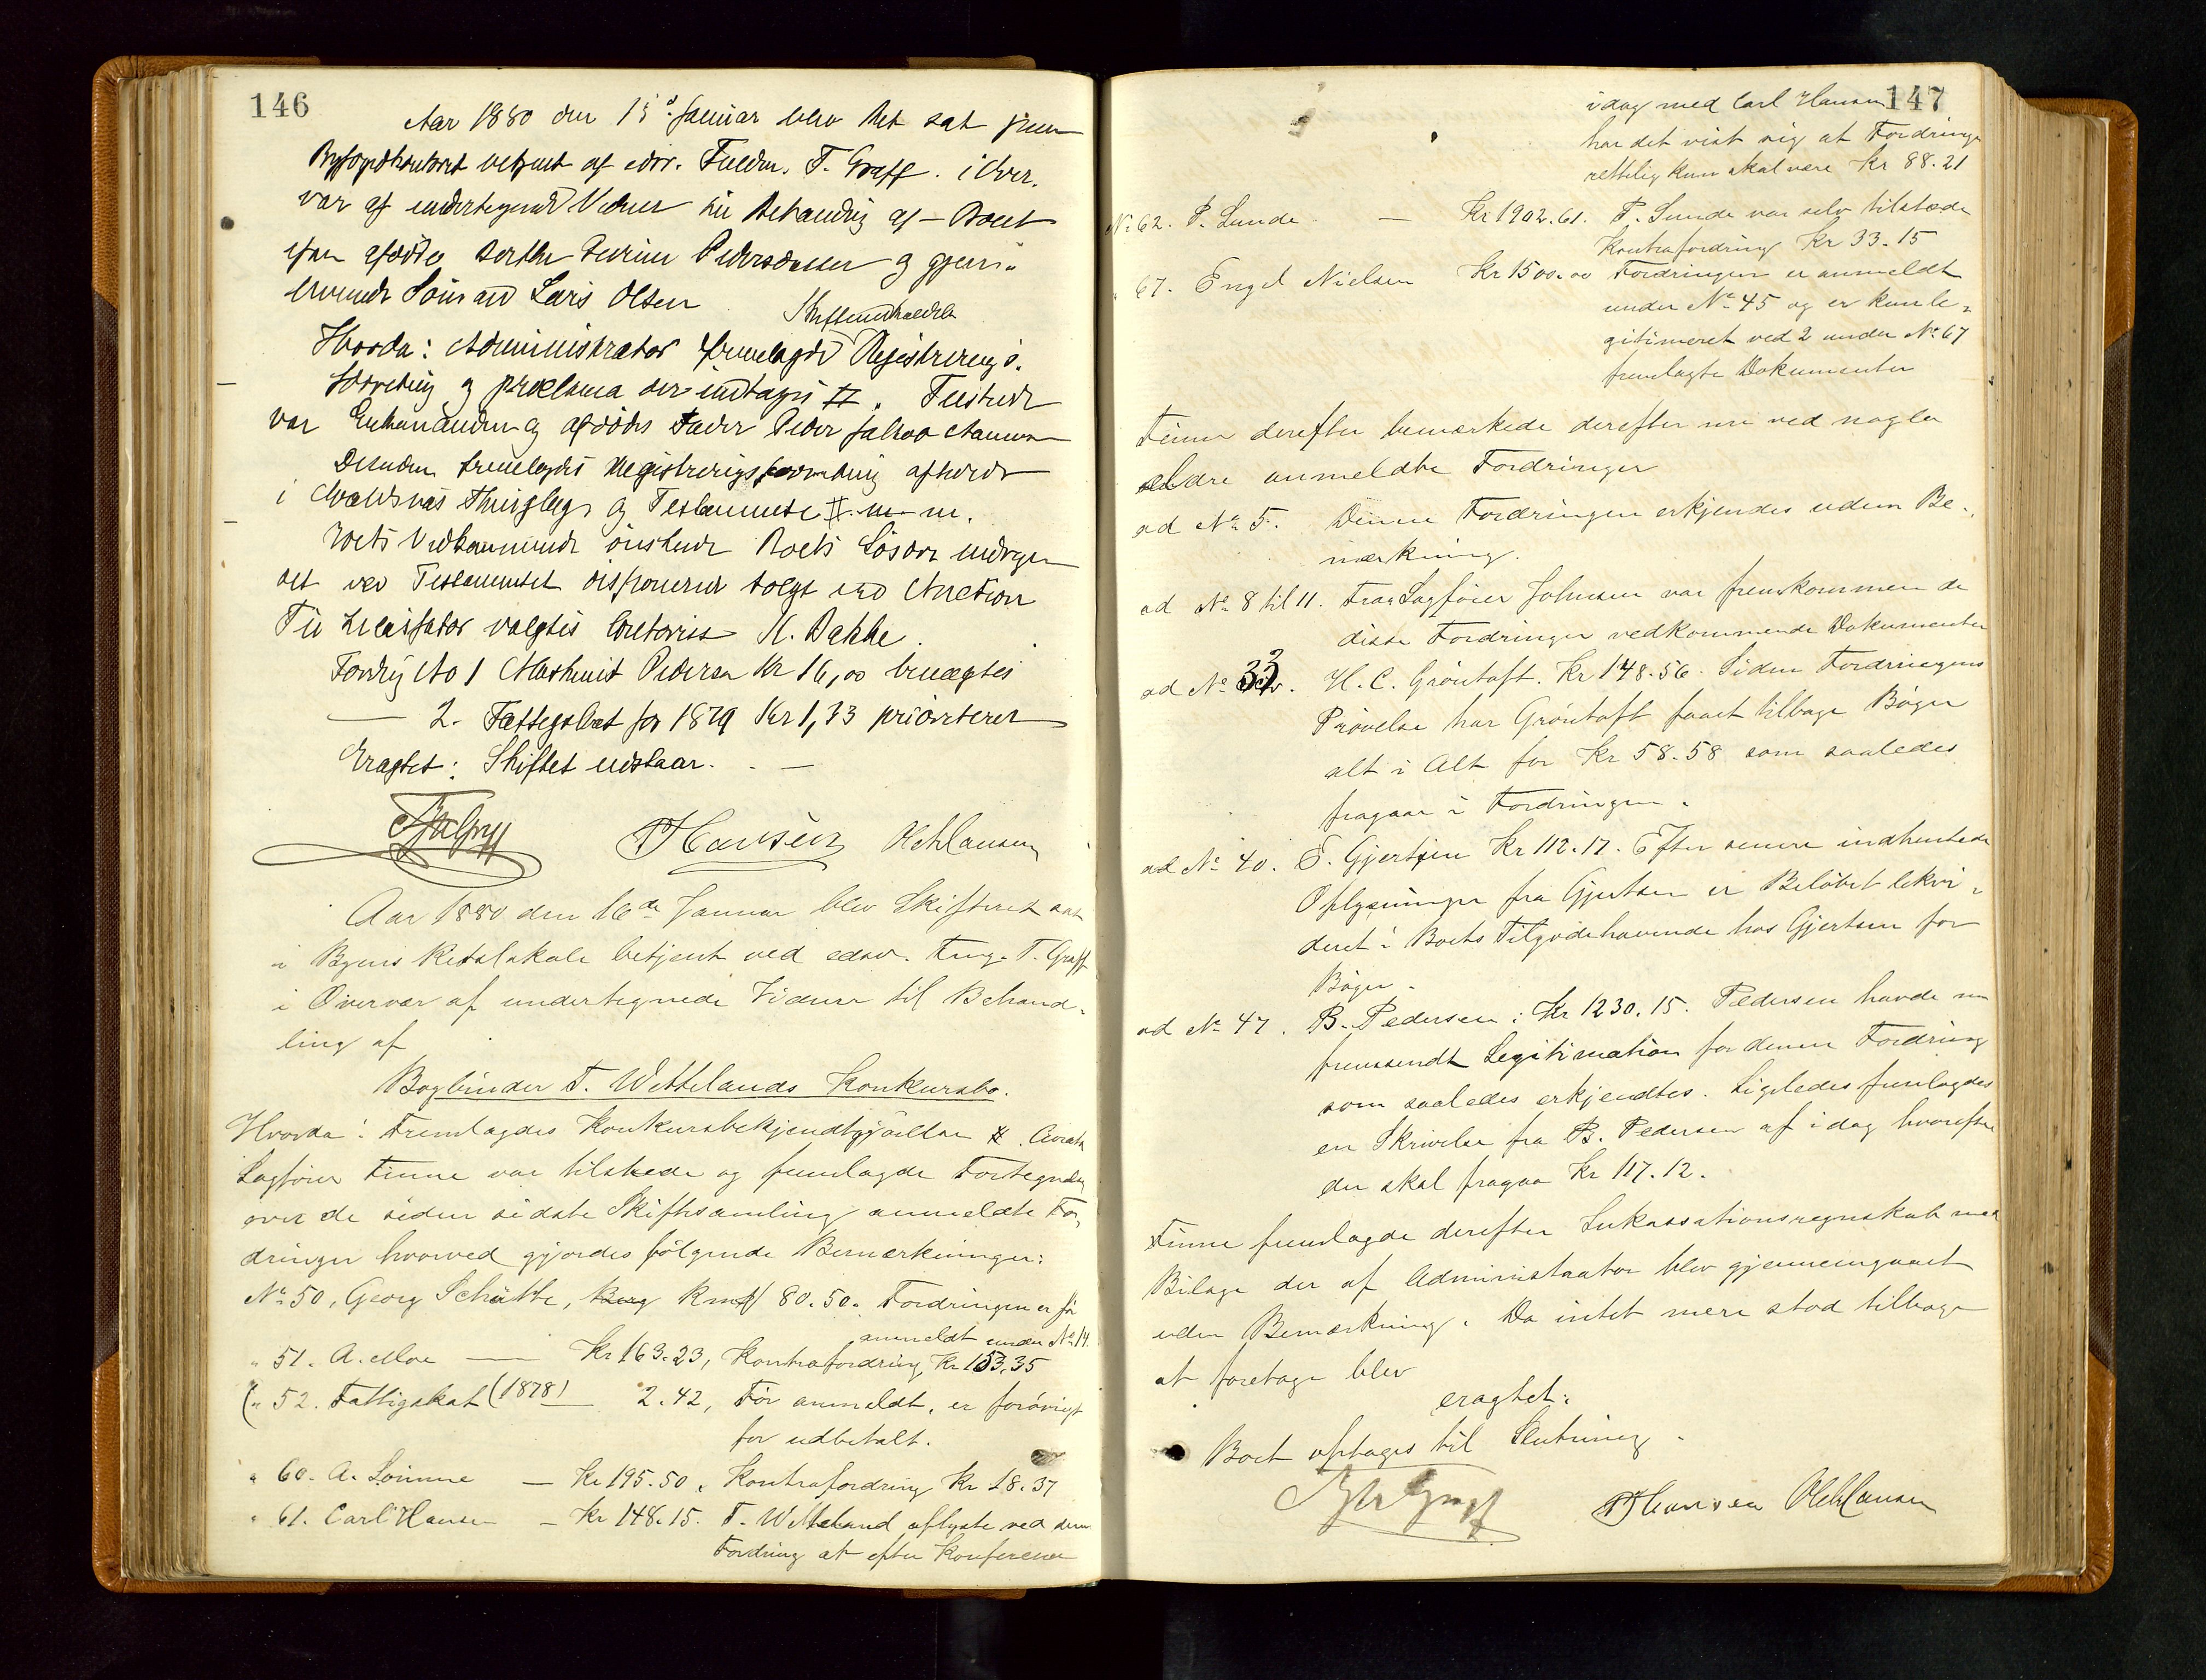 146
Aar 1880 den 15de Januar blev Ret sat paa
Byfogedkontoret betjent af edsv. Fuldm. T. Graff i Over-
vær af undertegnede Vidner til Behandling af Boet
efter afdøde Berthe Pedersdatter og gjen-
levende Lars Olsen
Hvorda: Administrator fremlagde Registrerings-
forretning og proklama der indtages #. Tilstede
var Enkemanden og afdødes Fader Peder
Desuden fremlagdes Registreringsforretning afholdt
i Thinglag og Testamente # m. m.
Boets Vedkommende ønskede Boets Løsøre
det ved Testamentet disponerede solgt ved Auction
Til Incassator valgtes H. Bakke.
Fordring No 1 Pedersen Kr 16,00 benægtes
— 2. Fattigskat for 1879 Kr 1,33 prioriteret
Eragtet: Skiftet udstaar. —
Hansen Ole Hansen
Aar 1880 den 16de Januar blev Skifteret sat
i Byens Retslokale betjent ved edsv. Fuldm. T. Graff
i Overvær af undertegnede Vidner til Behand-
ling af
Bogbinder T. Wettelands Konkursbo.
Hvorda: Fremlagdes Konkursbekjendtgjørelse #. Curator
Sagfører Finne var tilstede og fremlagde Fortegnelse
over de siden sidste Skiftesamling anmeldte For-
dringer hvorved gjordes følgende Bemærkninger:
No 50, Georg Schütte, Rmk 80.50. Fordringen er før
anmeldt under No 14.
" 51. A. Moe — Kr 163.23, Kontrafordring Kr 153,35
(" 52. Fattigskat (1878) — 2.42, Før anmeldt, er forøvrigt
før udbetalt.
" 60. A. Lomme — Kr 195.50. Kontrafordring Kr 18.37
" 61. Carl Hansen — Kr 148.15. T. Wetteland oplyste ved denne
Fordring at efter Konference
147
idag med Carl Hansen
har det vist sig at Fordringen
rettelig kun skal være Kr 88.21
No 62. P. Lunde — Kr 1902.61. P. Lunde var selv tilstede
Kontrafordring Kr 33.15
" 67. Engel Nielsen Kr 1500.00 Fordringen er anmeldt
under No 45 og er kun le-
gitimeret ved 2 under No 67
fremlagte Dokumenter
Finne derefter bemærkede derefter nu ved nogle
ældre anmeldte Fordringer
ad No 5. Denne Fordringen erkjendes uden Be-
mærkning.
ad No 8 til 11. Fra Sagfører Johnsen var fremkommen de
disse Fordringer vedkommende Dokumenter
ad No 33. H. C. Grøntoft. Kr 148.56. Siden Fordringens
Prøvelse har Grøntoft faaet tilbage Bøger
alt i Alt for Kr 58.58 som saaledes
fragaar i Fordringen.
ad No 40. E. Gjertsen Kr 112.17. Efter senere indhentede
Oplysninger fra Gjertsen er Beløbet likvi-
deret i Boets Tilgodehavende hos Gjertsen for
Bøger.
ad No 47. B. Pedersen: Kr 1230.15. Pedersen havde nu
fremsendt Legitimation for denne Fordring
som saaledes erkjendtes. Ligeledes fremlagdes
en Skrivelse fra B. Pedersen af idag hvorefter
der skal fragaa Kr 117.12.
Finne fremlagde derefter Inkassationsregnskab med
Bilage der af Administrator blev gjennemgaaet
uden Bemærkning. Da intet mere stod tilbage
at foretage blev
eragtet:
Boet optages til Slutning.
Hansen Ole Hansen